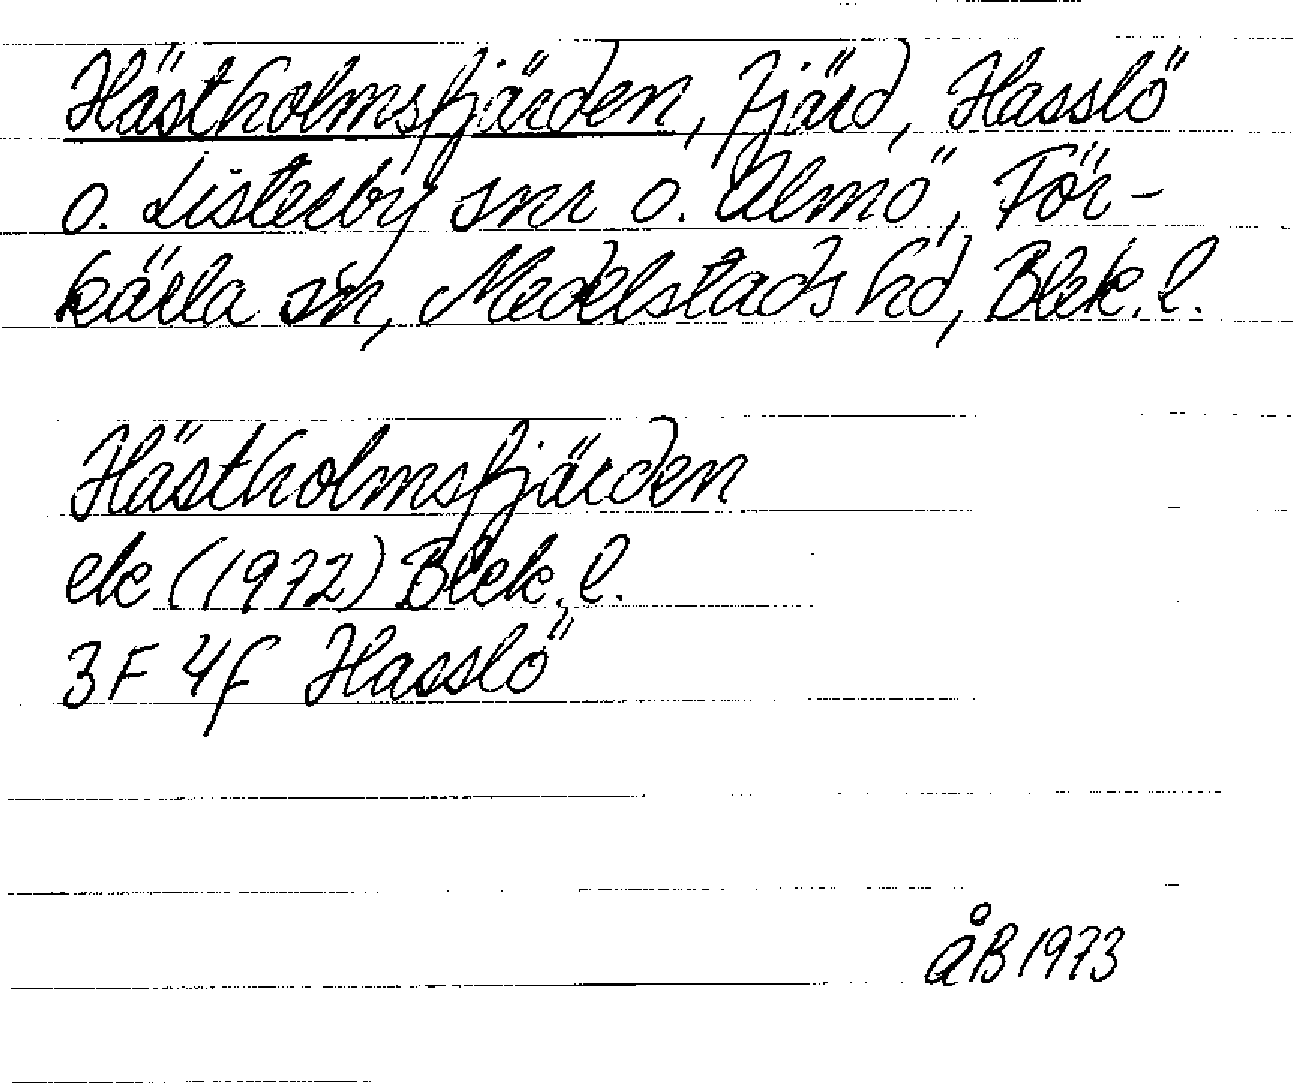 Hästholmsfjärden, fjärd, Hasslö
o. Listerby snr o. Almö, För-
kärla sn, Medelstads hd, Blek. l.
Hästholmsfjärden
ek (1972) Blek. l.
3F 4f Hasslö
ÅB 1973